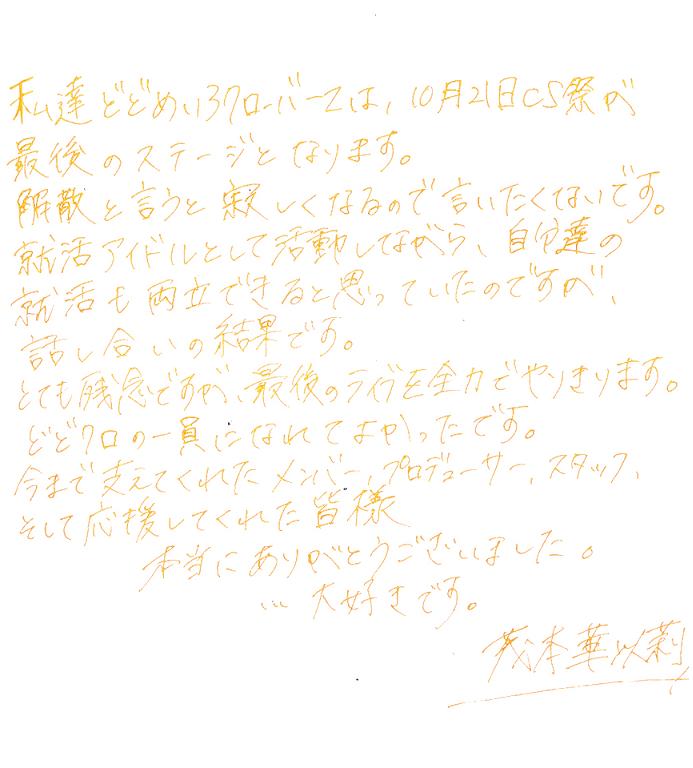 私達どどめいろクローバーZは、10月21日CS祭が
最後のステージとなります。
解散と言うと寂しくなるので言いたくないです。
就活アイドルとして活動しながら、自分達の
就活も両立できると思っていたのですが、
話し合いの結果です。
とても残念ですが、最後のライブを全力でやりきります。
どどクロの一員になれてよかったです。
今まで支えてくれたメンバー、プロデューサー、スタッフ、
そして応援してくれた皆様
本当にありがとうございました。
… 大好きです。
茂木華以莉